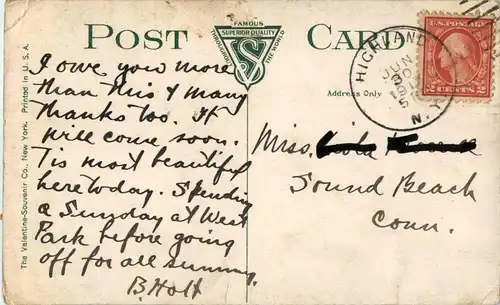 POST CARD
FAMOUS
THROUGHOUT SUPERIOR QUALITY THE WORLD
VS
Address Only
HIGHLAND
JUN
N.Y.
U.S. POSTAGE
2 CENTS 2
The Valentine-Souvenir Co., New York. Printed in U. S. A.
I owe you more
than this & many
thanks too. It
will come soon.
Tis most beautiful
here today. Spending
a Sunday at West
Park before going
off for all summer.
B. Holt
Miss.
Sound Beach
Conn.